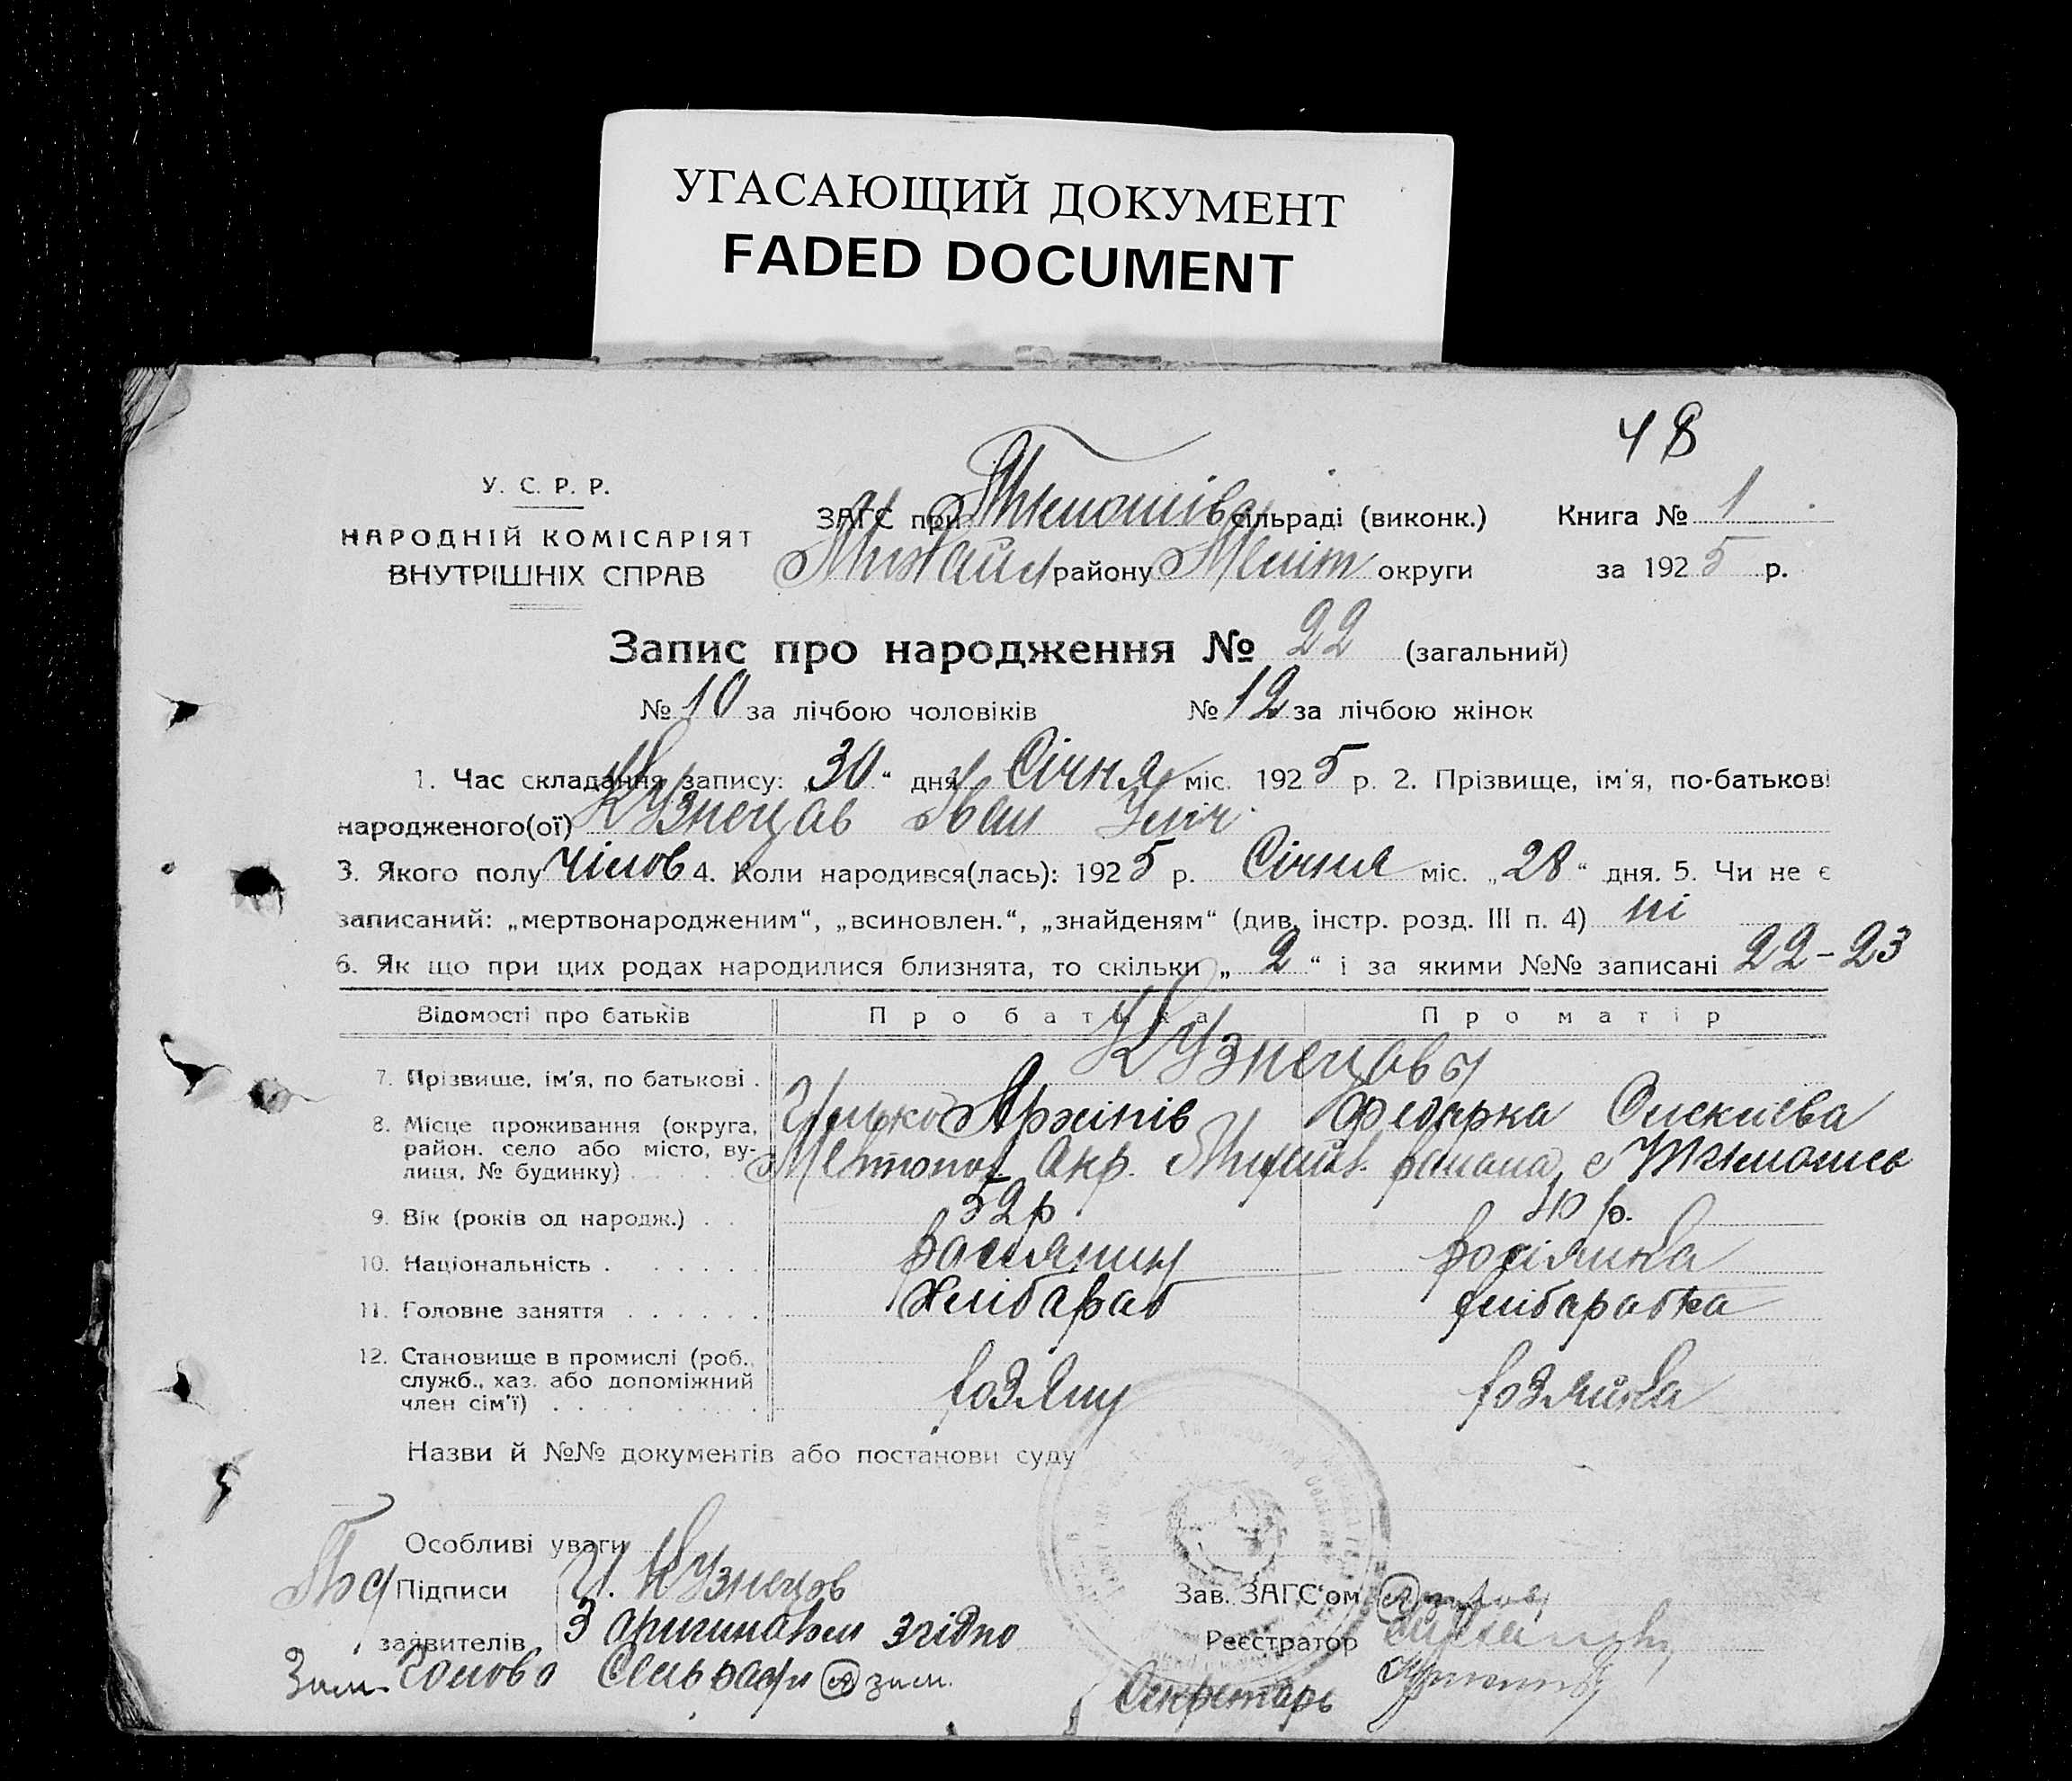 УГАСАЮЩИЙ ДОКУМЕНТ
FADED DOCUMENT
48
У. С. Р. Р.
НАРОДНІЙ КОМІСАРІЯТ
ВНУТРІШНІХ СПРАВ
ЗАГС при сільраді (виконк.)
Михайл району Меліт округи
Книга № 1
за 1925 р.
Запис про народження № 22 (загальний)
№ 10 за лічбою чоловіків № 12 за лічбою жінок
1. Час складання запису: „30“ дня Січня міс. 1925 р. 2. Прізвище, ім'я, по-батькові
народженого(ої) Кузнецов Іван Ілліч
3. Якого полу чілов 4. Коли народився(лась): 1925 р. Січня міс. „28“ дня. 5. Чи не є
записаний: „мертвонародженим“, „всиновлен.“, „знайденям“ (див. інстр. розд. III п. 4) ні
6. Як що при цих родах народилися близнята, то скільки „2“ і за якими №№ записані 22-23
Відомості про батьків Про батька Про матір
7. Прізвище, ім'я, по батькові . Кузнецовы
Илько Архипів Федорка Олексієва
8. Місце проживання (округа, район. село або місто, ву-
лиця, № будинку) Мелітопол. Окр. Михайл. района с
9. Вік (років од народж.) . . 52 р 40 р.
10. Національність . росіянин росіянка
11. Головне заняття Хлібароб хлібаробка
12. Становище в промислі (роб.,
служб., хаз. або допоміжний
член сім'ї) хозяин хозяйка
Назви й №№ документів або постанови суду
Особливі уваги
Підписи И. Кузнецов
заявителів З оригиналом згідно
Зам. Голова Сельради
Зав. ЗАГС'ом
Реєстратор
Секретарь